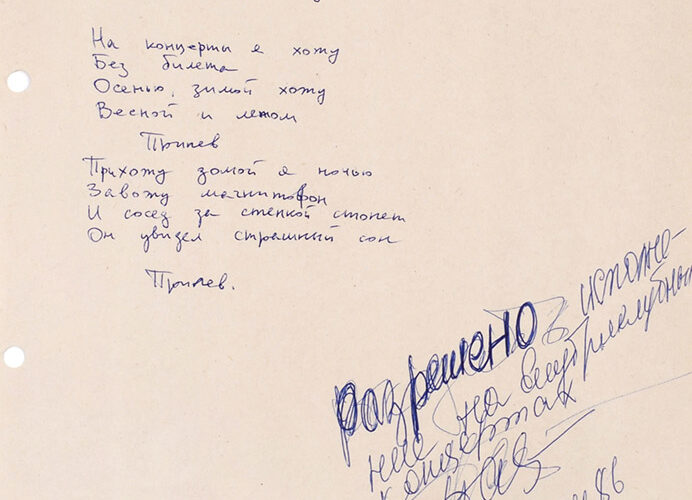 На концерты я хожу
Без билета
Осенью, зимой хожу
Весной и летом
Припев
Прихожу домой я ночью
Завожу магнитофон
И сосед за стенкой стонет
Он увидел страшный сон
Припев.
разрешено исполне-
ние на внутриклубных
концертах
86